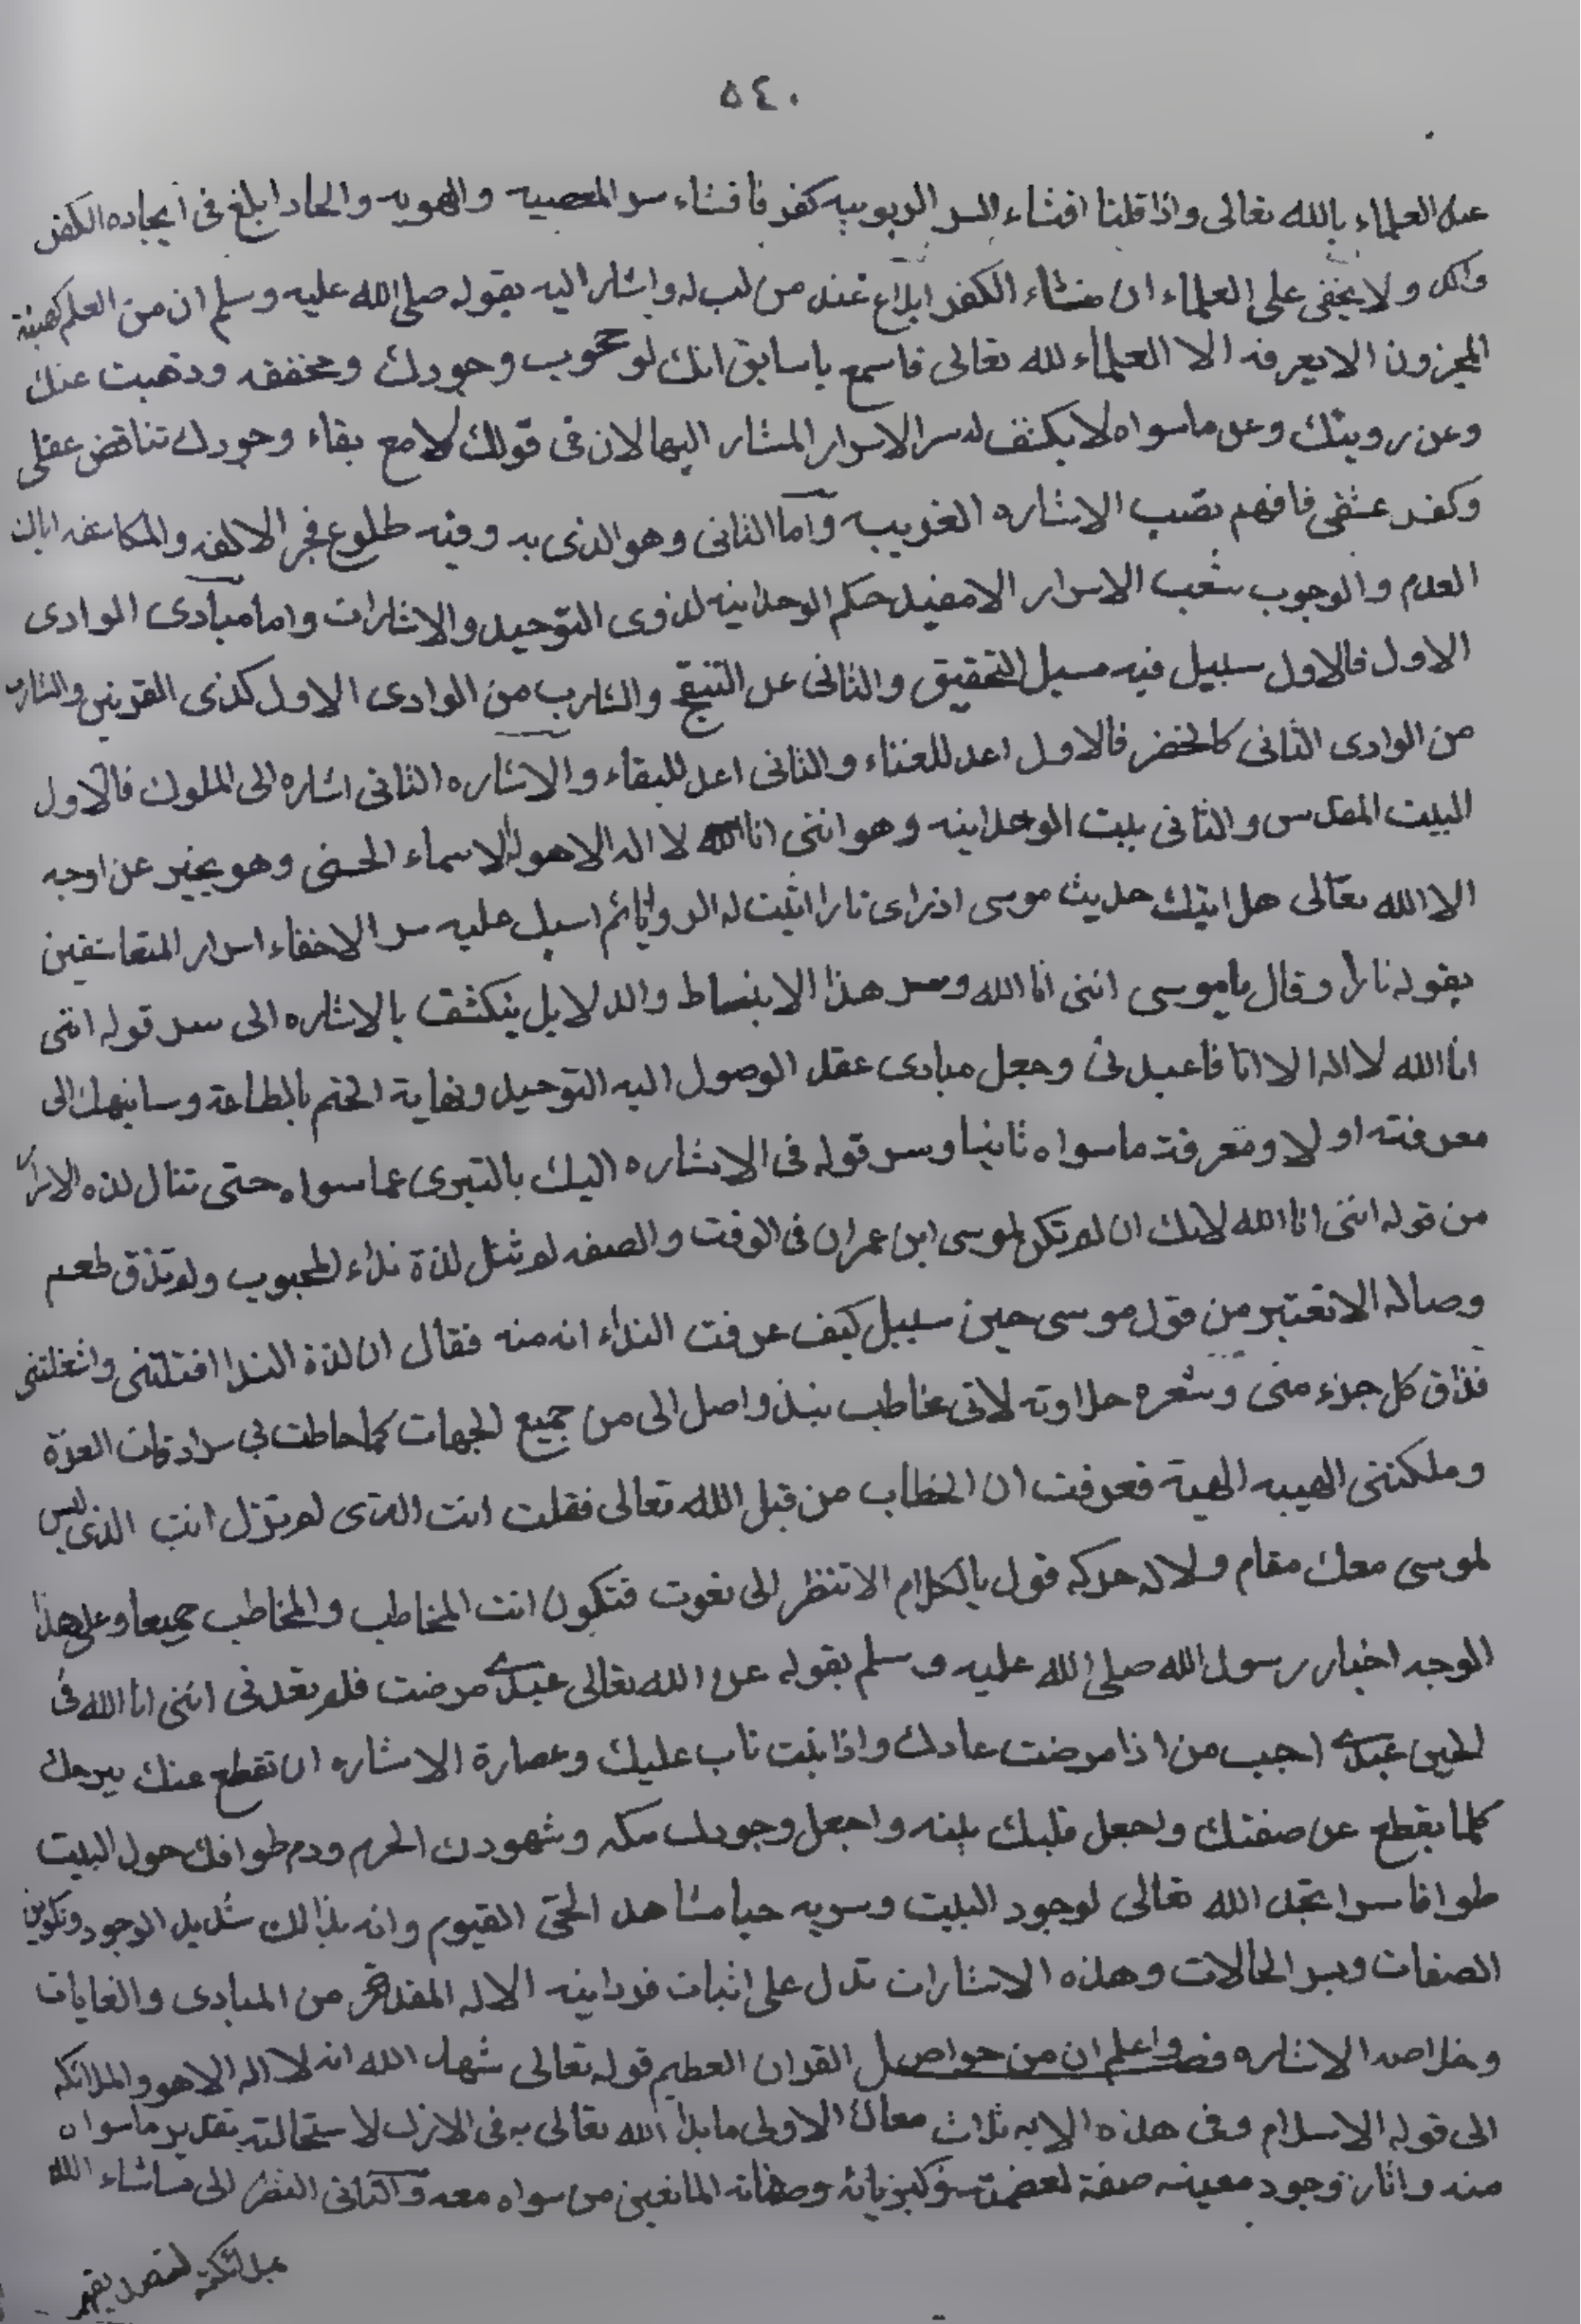 ٥٤٠
عند العلماء بالله تعالى واذا قلنا افشاء السر الربوبيه كفر فافشاء سر المعصيه والهويه والحاد ابلغ فى ايجاده الكفر
ولا يخفى على العلماء ان منشاء الكفر ابلاغ عند من لب له واشار اليه بقوله صلى الله عليه وسلم ان من العلم كهيئة
المخزون الا يعرفه الا العلماء لله تعالى فاسمع ياسابق انك لو وجودك ودهبت عنك
وعن رويتك وعن ماسواه لا يكشف له سر الاسرار المشار اليها لان فى قولك لا مع بقاء وجودك تناقض عقلى
وكفر عشقى فافهم نصب الاشاره الغريبه واما الثانى وهو الذى به وفيه طلوع فجر الالفه والمكاشفه
العدم والوجوب شعب الاسرار الا مفيد حكم الوحدانيه لذوى التوحيد والاشارات واما مبادى الوادى
الاول فالاول سبيل فيه مسبل التحقيق والثانى عن والشارب من الوادى الاول كذى القرنين والشارب
من الوادى الثانى كالخضر فالاول اعد للفناء والثانى اعد للبقاء والاشاره الثانى اشاره الى الملوك فالاول
البيت المقدس والثانى بيت الوحدانيه وهو اننى انا الله لا اله الا هو له الاسماء الحسنى وهو يخبر عن اوجه
الا الله تعالى هل اتيك حديث موسى اذ راى نارا اثبت له ثم اسبل عليه سر الاخفاء اسرار المتعاشقين
بقوله نارا وقال ياموسى اننى انا الله وسر هذا الانبساط والدلايل ينكشف بالاشاره الى سر قوله اننى
انا الله لا اله الا انا فاعبدنى وجعل مبادى عقد الوصول اليه التوحيد ونهاية الختم بالطاعة وسانبهك الى
معرفته اولا ومعرفت ماسواه ثانيا وسر قوله فى الاشاره اليك بالتبرى عما سواه حتى تنال لذه
من قوله اننى انا الله لانك ان لم تكن لموسى ابن عمران فى الوقت والصفه لم تنل لذة نداء المحبوب ولم تذق طعم
وصاله الا تعتبر من قول موسى حين سبيل كيف عرفت النداء انه منه فقال ان لذة الندا افتلتنى واشغلتنى
فذاق كل جزء منى وشعره حلاوته لانى مخاطب واصل الى من جميع الجهات كما احاطت بى سرادقات العزة
وملكتنى الهيبه الهية فعرفت ان الخطاب من قبل الله تعالى فقلت انت الذى لم تزل انت الذى ليس
لموسى معك مقام ولا له حركه قول بالكلام الا تنظر الى نعوت فتكون انت المخاطب والمخاطب جميعا وعلى هذا
الوجه اخبار رسول الله صلى الله عليه وسلم بقوله عن الله تعالى عبدى مرضت فلم تعدنى اننى انا الله فى
عبدى احب من اذا مرضت عادك واذا تاب عليك وعصارة الاشاره ان تقطع عنك
كلما يقطع عن صفتك واجعل قلبك واجعل وجودك مكه وشهودك الحرم ودم طوافك حول البيت
طوافا سرا تجد الله تعالى لوجود البيت وسريه حيا مشاهد الحى القيوم وانه بذالك شديد الوجود وتكوين
الصفات وبسر الحالات وهذه الاشارات تدل على اثبات فردانيه الاله المقدس من المبادى والغايات
وخلاصه الاشاره فصل واعلم ان من حواصل القران العظيم قوله تعالى شهد الله انه لا اله الا هو والملائكه
الى قوله الاسلام وفى هذه الايه ثلاث معان الاولى مابدا الله تعالى به فى الازل لاستحالته تقدير ماسواه
منه وانار وجود صفة وكبريائه وصفاته المانعين من سواه معه والثانى النظر الى ماشاء الله